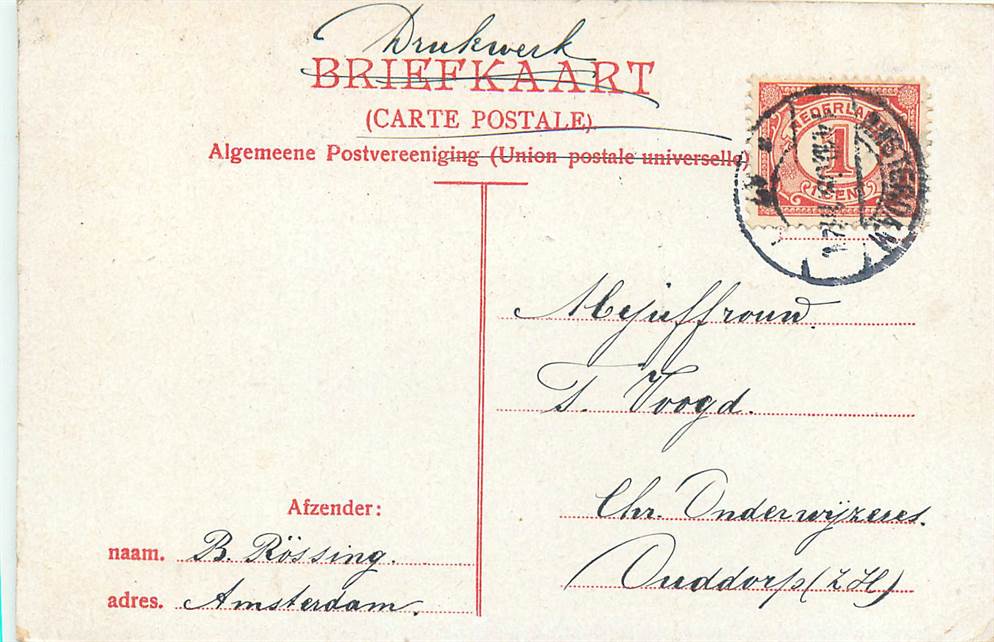 Drukwerk
BRIEFKAART
(CARTE POSTALE).
Algemeene Postvereeniging (Union postale universelle)
NEDERLAND
1
CENT
AMSTERDAM
Mejuffrouw.
T. Voogd.
Chr. Onderwijzeres.
Ouddorp (Z.H.)
Afzender:
naam. B. Rössing.
adres. Amsterdam.